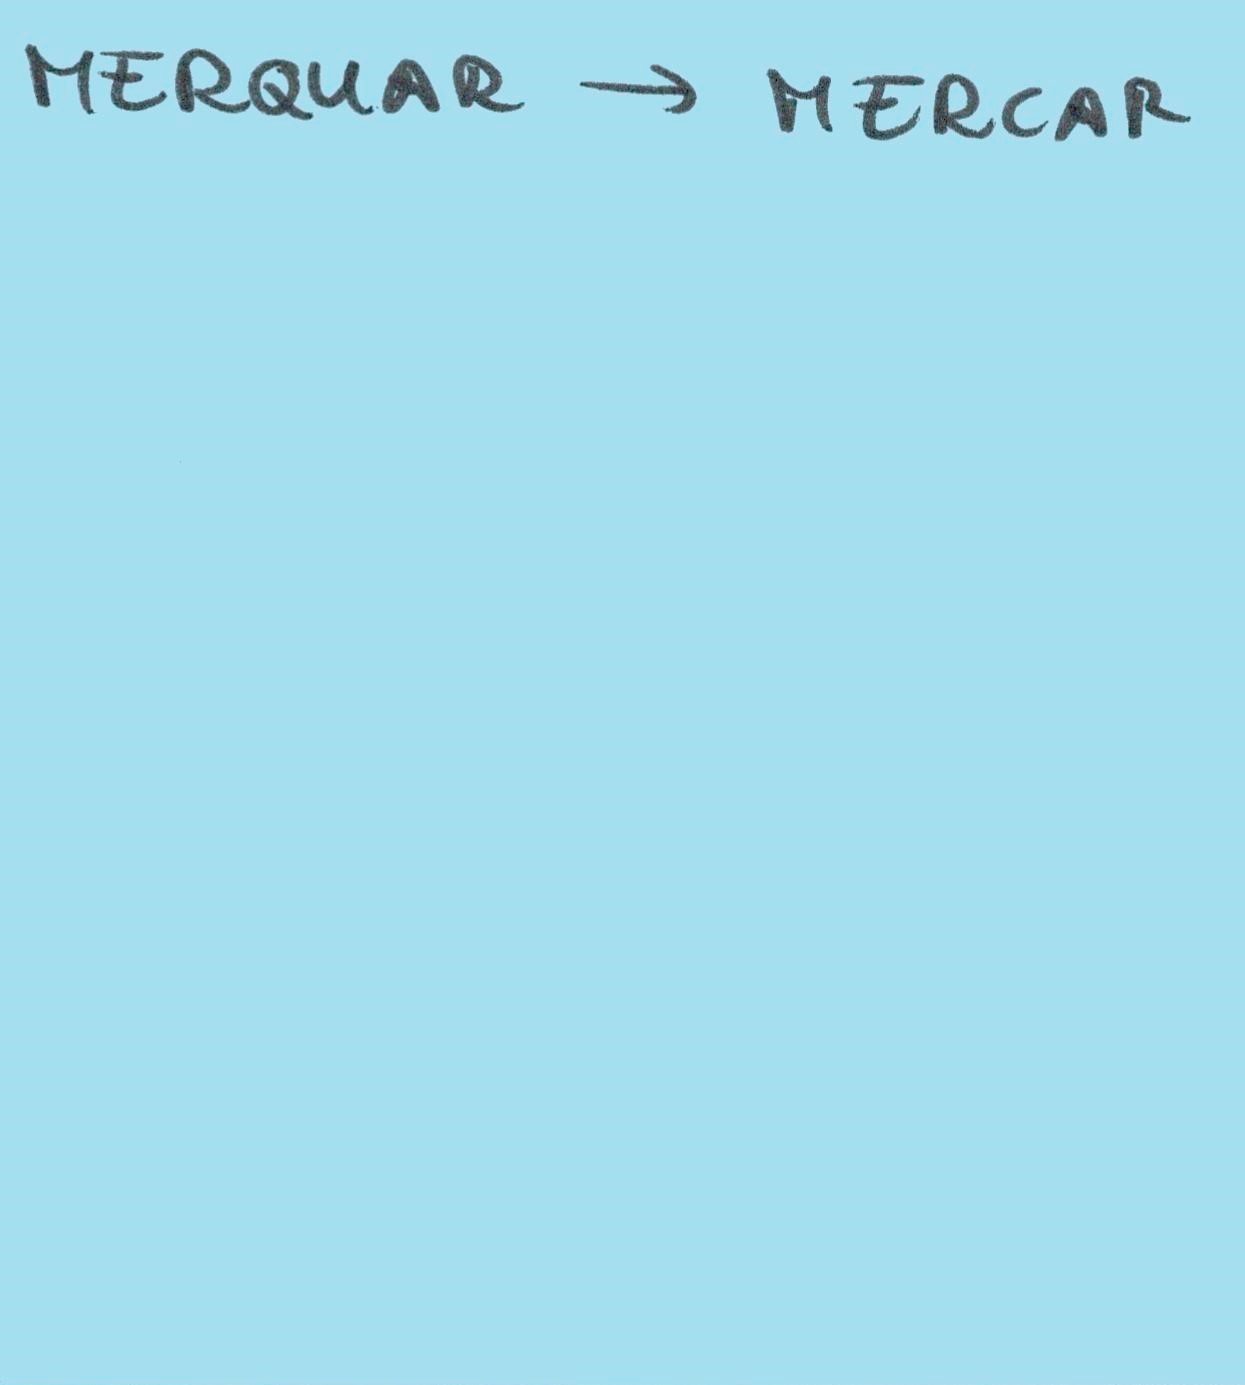 MERQUAR → MERCAR